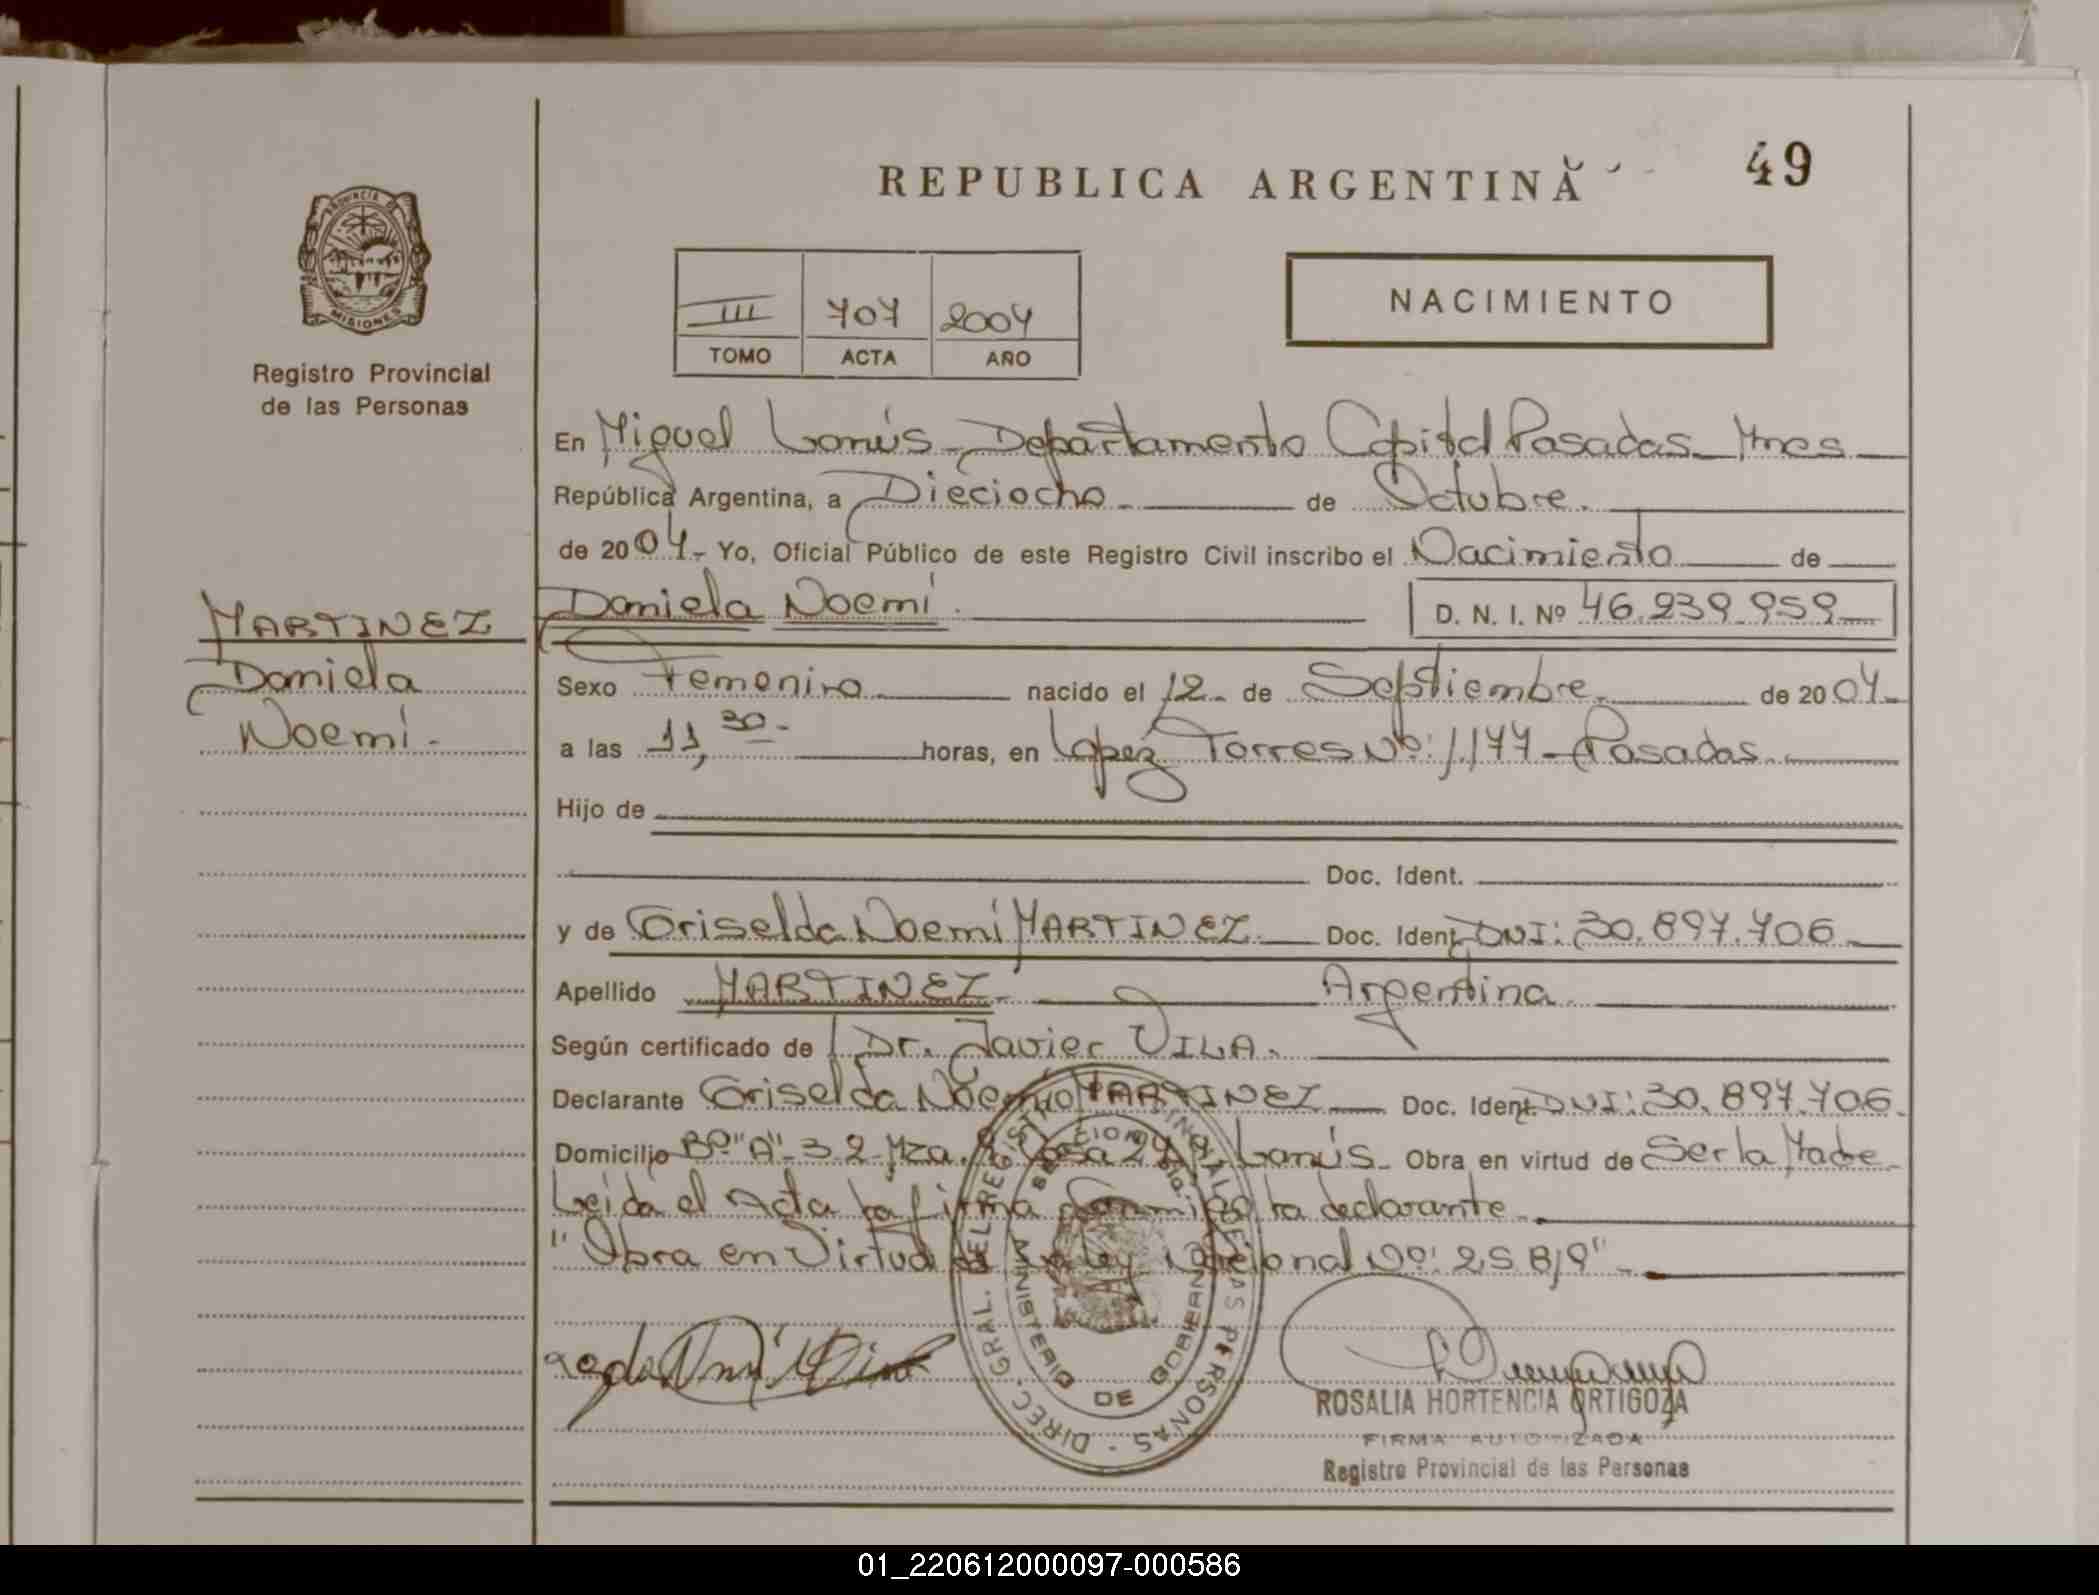 REPUBLICA ARGENTINA
49
PROVINCIA DE
MISIONES
Registro Provincial
de las Personas
III 707 2004
TOMO ACTA AÑO
NACIMIENTO
En Miguel Lanús - Departamento Capital Posadas - Mnes
República Argentina, a Dieciocho de Octubre.
de 2004- Yo, Oficial Público de este Registro Civil inscribo el Nacimiento de
MARTINEZ
Daniela
Noemí-
Daniela Noemí. D. N. I. Nº 46.239.959
Sexo Femenino nacido el 12- de Septiembre de 2004-
a las 11,30- horas, en López Torres Nº: 1.177 - Posadas.
Hijo de
Doc. Ident.
y de Griselda Noemí MARTINEZ Doc. Ident. DNI: 30.897.706
Apellido MARTINEZ Argentina
Según certificado de Dr. Javier VILA.
Declarante Griselda Noemí MARTINEZ Doc. Ident. DNI: 30.897.706.
Domicilio Bº "A"-3-2-Mza. Casa Lanús. Obra en virtud de Ser la Madre
Leída el Acta la firma Conmigo la declarante
"Obra en Virtud de la Ley Nacional Nº: 25.819"
DIREC. GRAL. DEL REGISTRO PROVINCIAL DE LAS PERSONAS
MINISTERIO DE GOBIERNO
ROSALIA HORTENCIA ORTIGOZA
FIRMA AUTORIZADA
Registro Provincial de las Personas
01_220612000097-000586